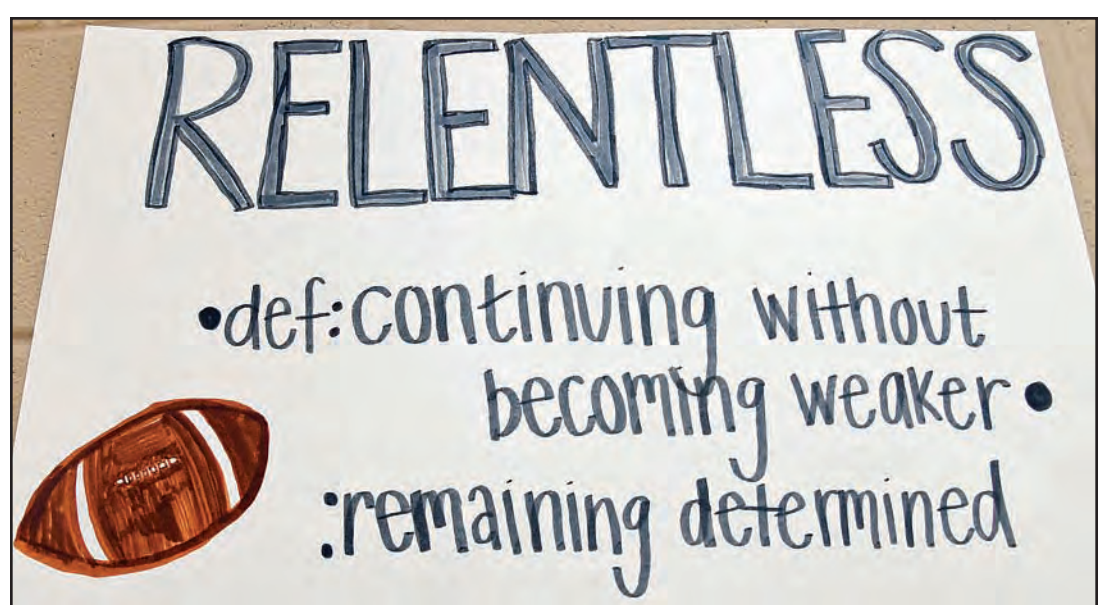 RELENTLESS
•def: continuing without
becoming weaker•
:remaining determined